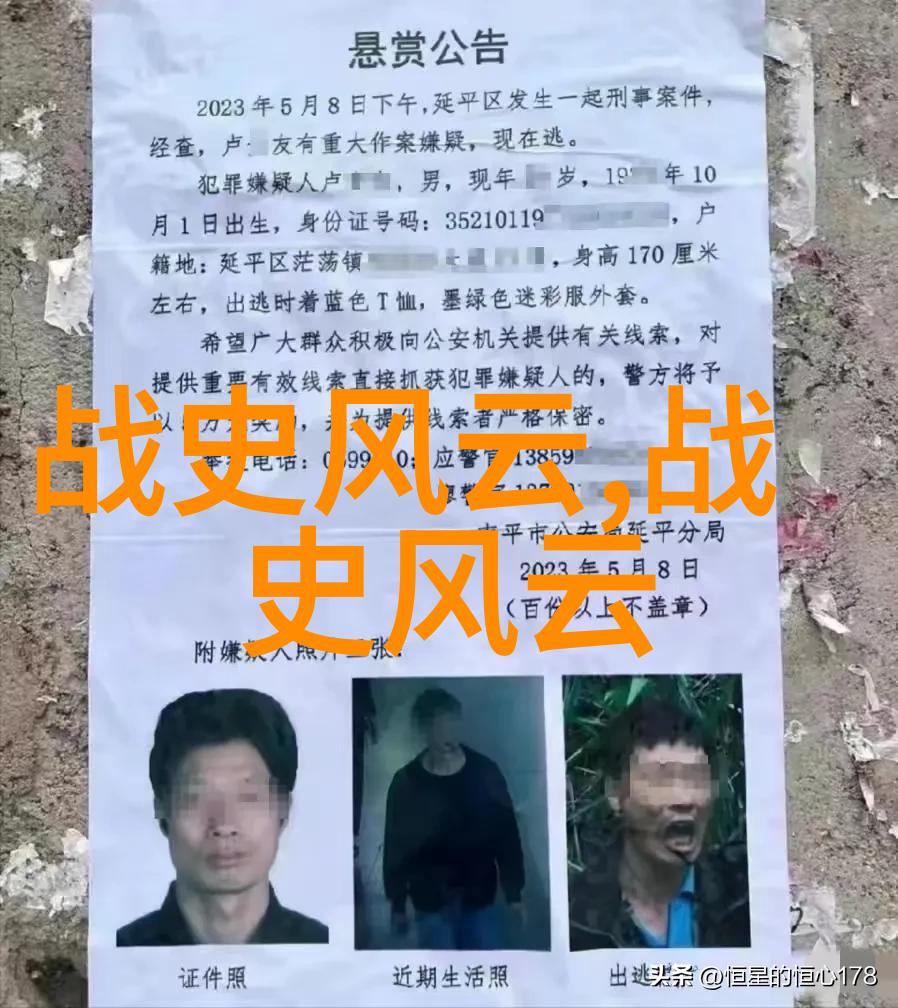 悬赏公告
2023年5月8日下午,延平区发生一起刑事案件,
经查，卢 友有重大作案嫌疑，现在逃。
犯罪嫌疑人卢 ，男，现年 岁，19 年10
月1日出生，身份证号码：35210119 ，户
籍地：延平区茫荡镇 ，身高170厘米
左右，出逃时着蓝色T恤，墨绿色迷彩服外套。
希望广大群众积极向公安机关提供有关线索，对
提供重要有效线索直接抓获犯罪嫌疑人的，警方将予
以 线索者严格保密。
战史风云,战
史风云
电话： 应警官13859
平市公安局延平分局
2023年5月8日
（百份以上不盖章）
附嫌疑人照片三张：
证件照 近期生活照 出逃
头条 @恒星的恒心178